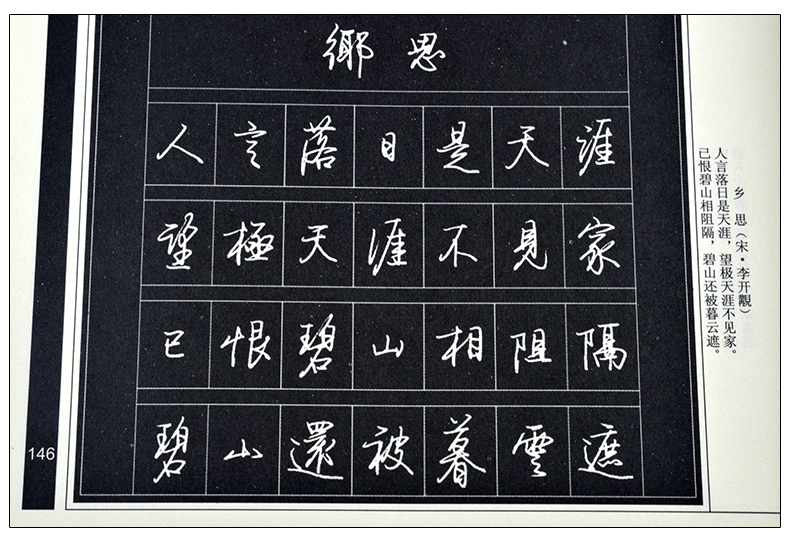 鄉思
人言落日是天涯
望極天涯不見家
已恨碧山相阻隔
碧山還被暮雲遮
乡 思（宋·李开觏）
人言落日是天涯，望极天涯不见家。
已恨碧山相阻隔，碧山还被暮云遮。
146